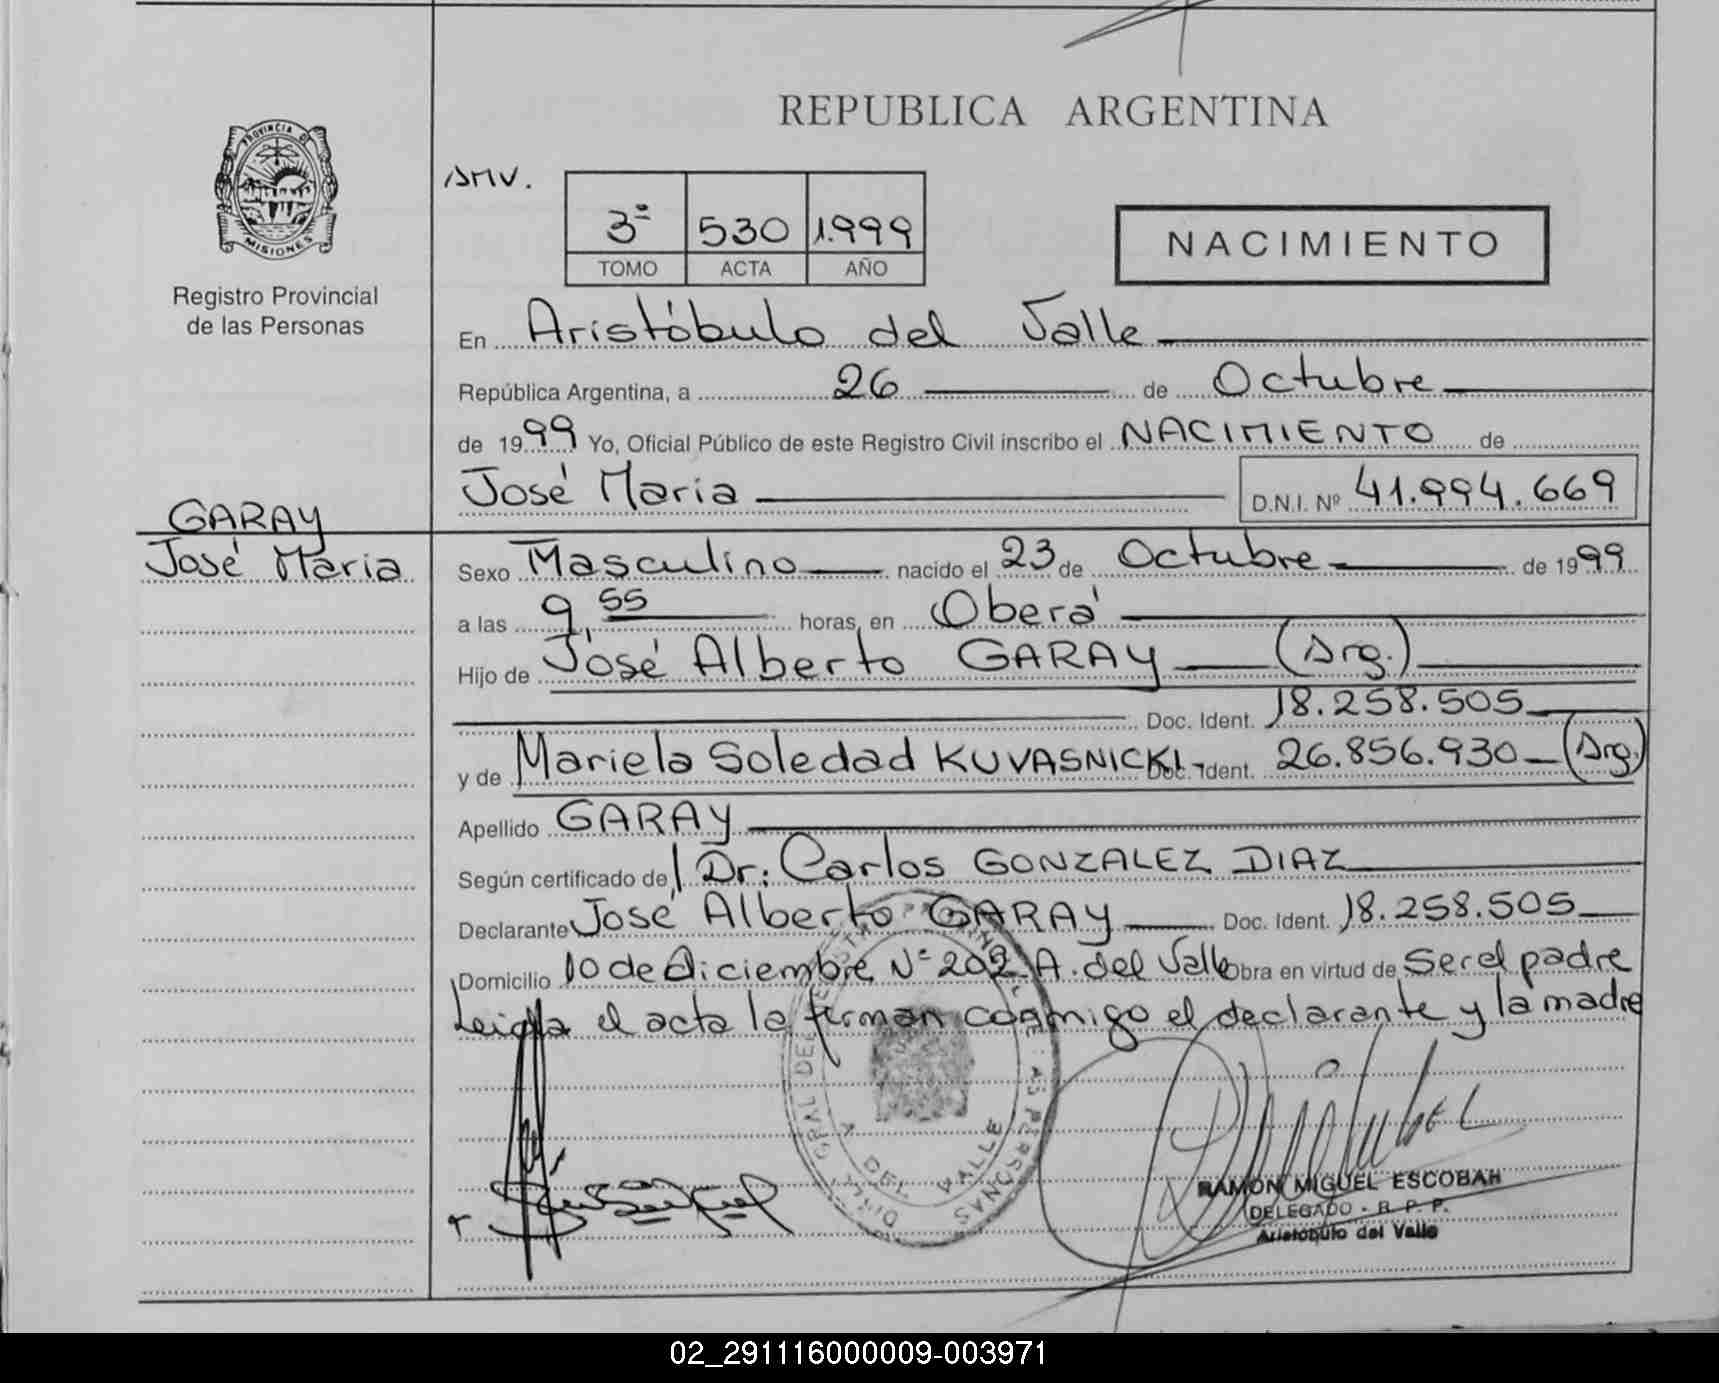 REPUBLICA ARGENTINA
PROVINCIA DE
MISIONES
Registro Provincial
de las Personas
3º 530 1.999
TOMO ACTA AÑO
NACIMIENTO
En Aristóbulo del Valle
República Argentina, a 26 de Octubre
de 1999 Yo, Oficial Público de este Registro Civil inscribo el NACIMIENTO de
José Maria D.N.I. Nº 41.994.669
GARAY
José Maria
Sexo Masculino nacido el 23 de Octubre de 1999
a las 9 55 horas, en Oberá
Hijo de José Alberto GARAY (Arg.)
Doc. Ident. 18.258.505
y de Mariela Soledad KUVASNICKI- Doc. Ident. 26.856.930 (Arg.)
Apellido GARAY
Según certificado de Dr: Carlos GONZALEZ DIAZ
Declarante José Alberto GARAY Doc. Ident. 18.258.505
Domicilio 10 de Diciembre Nº 202 A. del Valle Obra en virtud de Ser el padre
Leida el acta la firman conmigo el declarante y la madre
A. DEL VALLE
RAMON MIGUEL ESCOBAR
DELEGADO - R. P. P.
Aristobulo del Valle
02_291116000009-003971